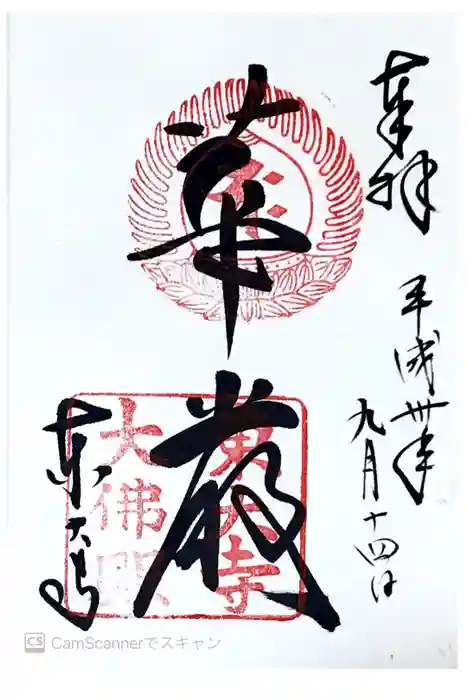 奉拝
平成卅年
九月十四日
華
嚴
東大寺
東大寺
大佛殿
CS CamScannerでスキャン